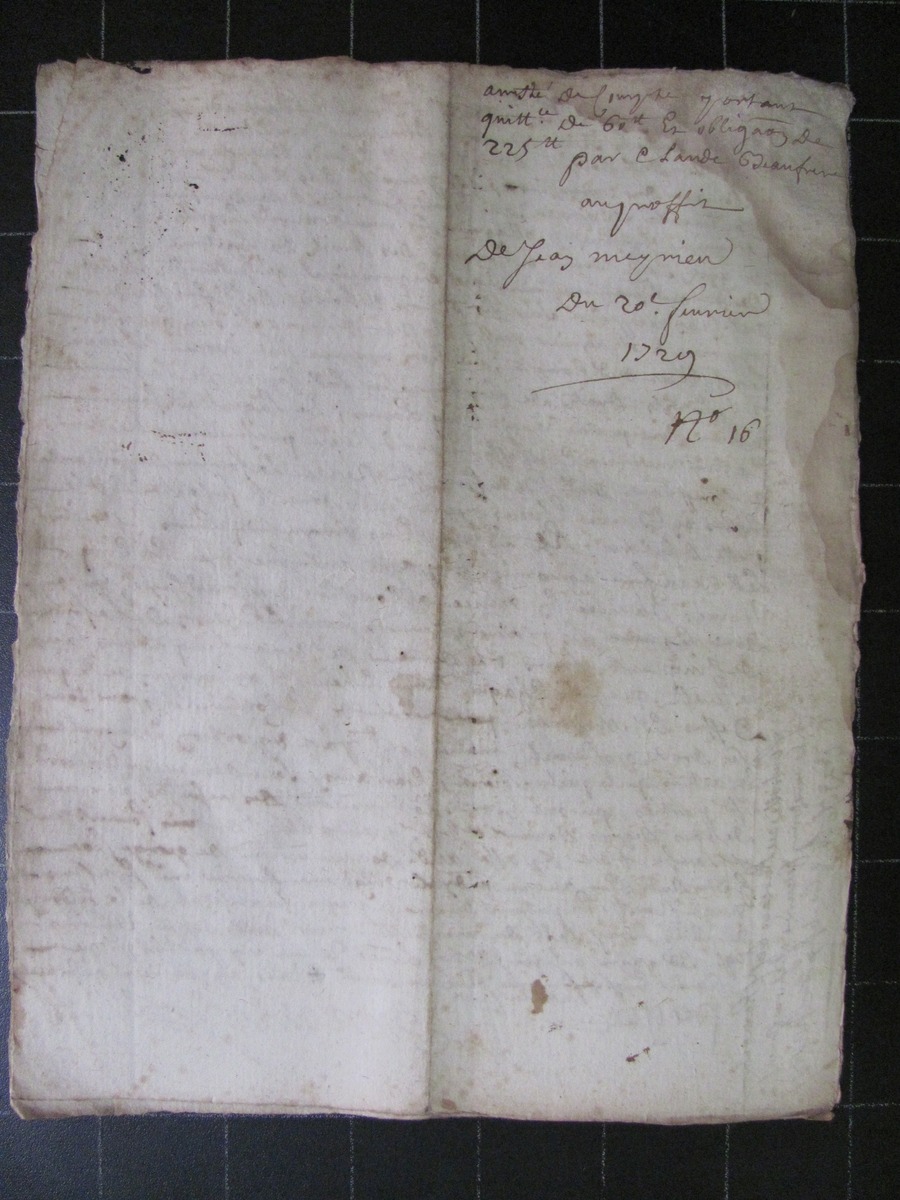 arresté de Compte portant
quitt.ce de 60tt Et obligaon de
225tt par Claude Beaufrere
auproffit
De Jean meynieu
Du 20e feuvrier
1729
No 16